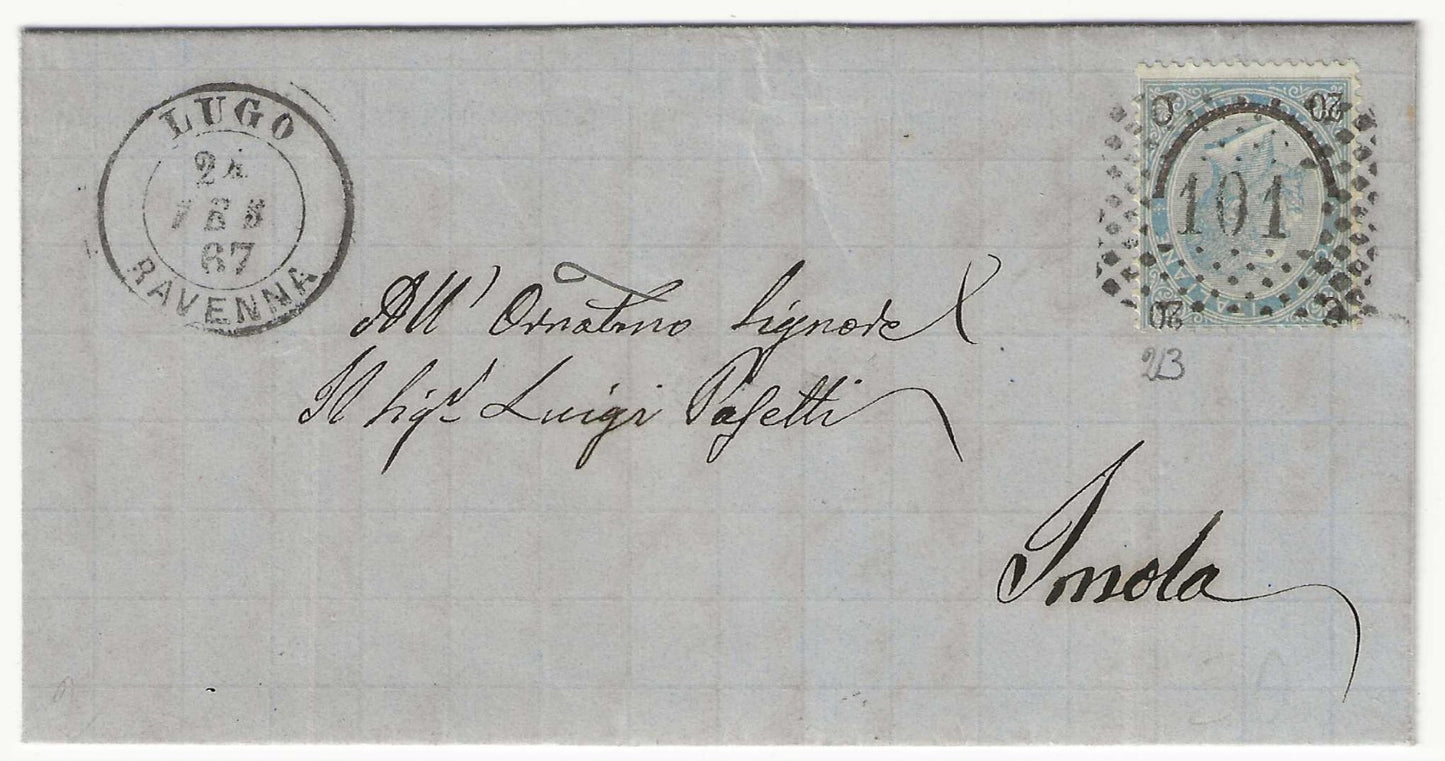 LUGO
24
FEB
67
RAVENNA
C 20
101
20 C
23
All' Ornatmo Signore
Il Sigr Luigi Pasetti
Imola